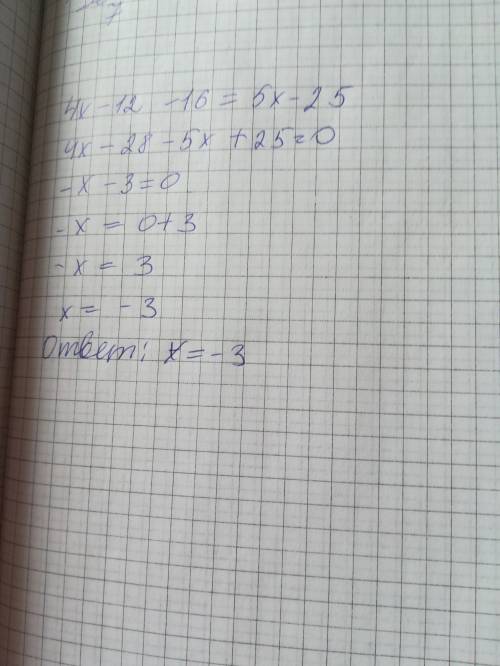 4x - 12 - 16 = 5x - 25
4x - 28 - 5x + 25 = 0
- x - 3 = 0
- x = 0 + 3
- x = 3
x = - 3
Ответ: x = - 3